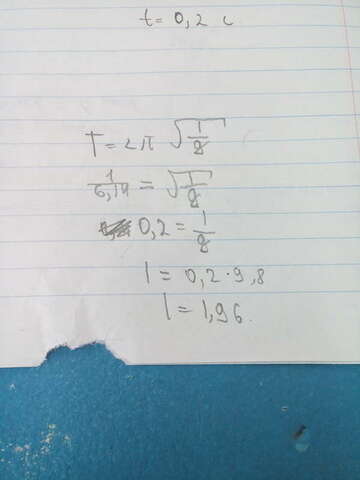 t = 0,2 с
T = 2π √(l/g)
1/6,14 = √(l/g)
0,2 = l/g
l = 0,2 · 9,8
l = 1,96.